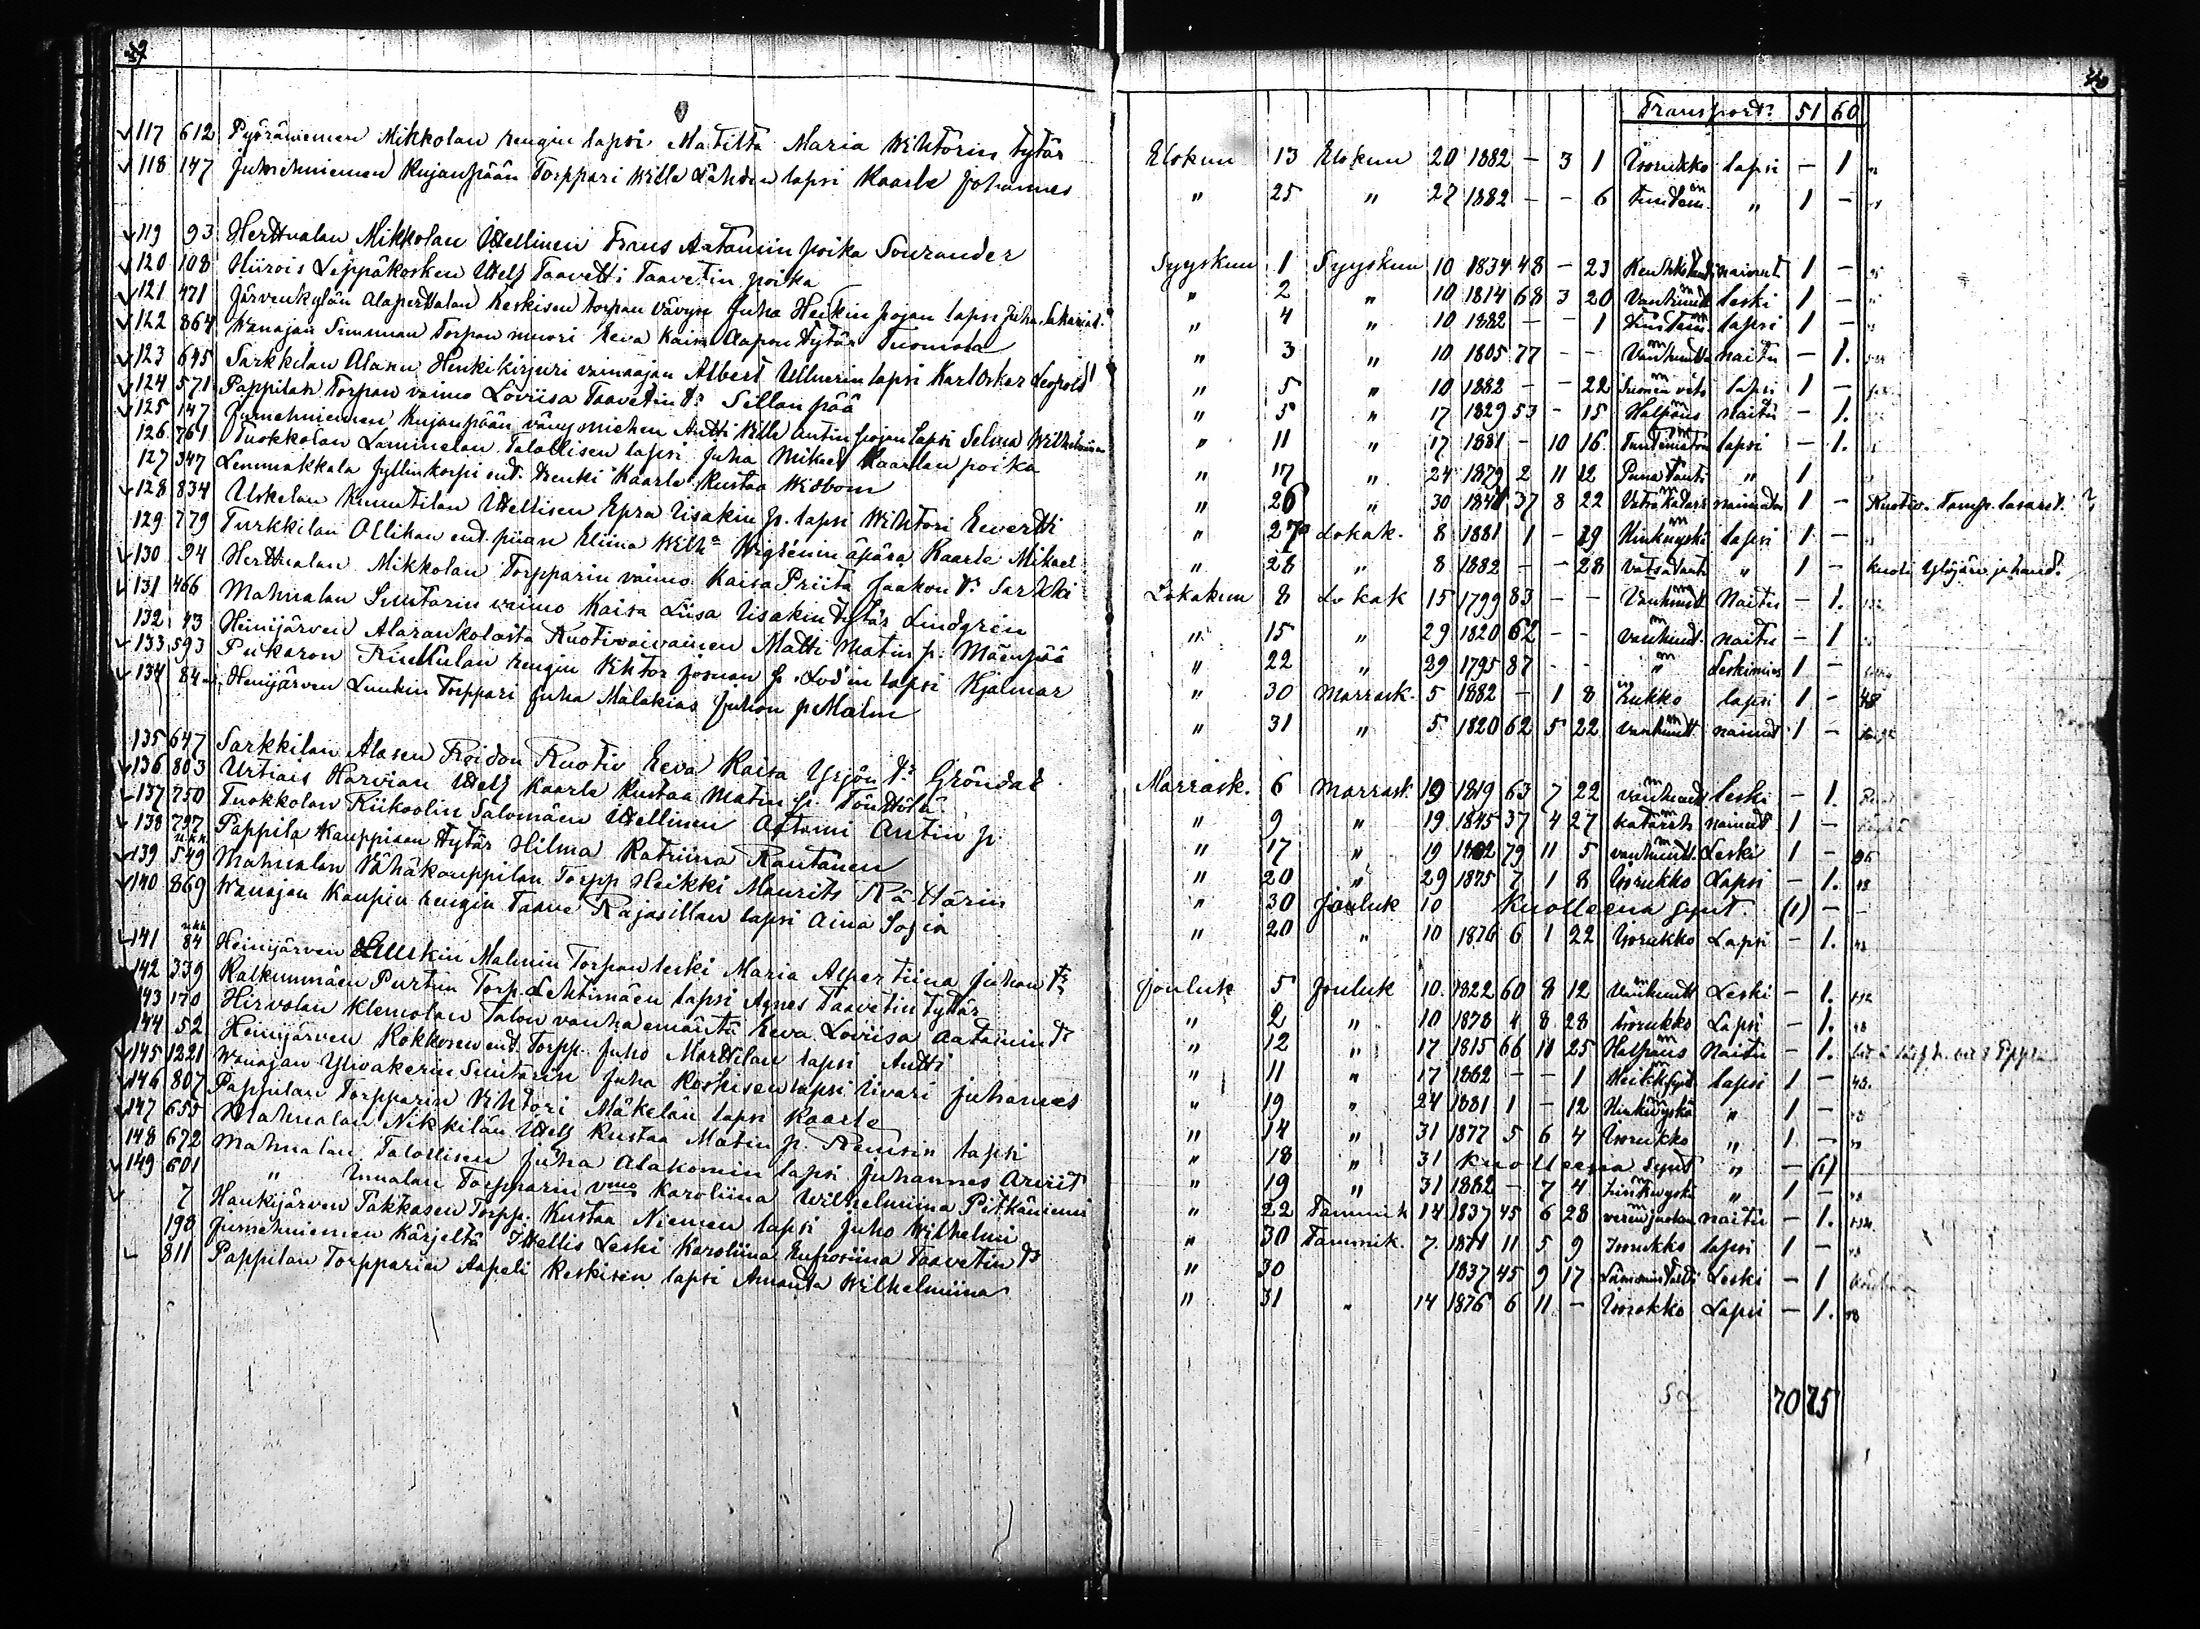 117 612 Pyöräniemen Mikkolan rengin lapsi Matilta Maria Wihtorin tytär
118 147 Jumehniemen Kujanpään Torppari Wille Lähden lapsi Kaarle Johannes
119 93 Herttualan Mikkolan Itellinen Frans Aatamin poika Sourander
120 108 Hiirois Leppäkosken Itell Taavetti Taavetin poika
121 471 Järvenkylän Alaperttalan Keskisen torpan vävyn Juha Heikin pojan lapsi Juha Sakarias
122 864 Wanajan Simunan Torpan muori Eeva Kaisa Aapon tytär Tuomola
123 645 Sarkkilan Alasen Henkikirjuri vainaajan Albert Ullnerin lapsi Karl Oskar Leopold
124 571 Pappilan Torpan vaimo Loviisa Taavetin tr Sillanpää
125 147 Jumehniemen Kujanpään vävymiehen Antti Wille Antin pojan lapsi Selma Wilhelmiina
126 761 Tuokkolan Lammelan Talollisen lapsi Juha Mikael Kaarlan poika
127 347 Lemmakkala Jyllinkorpi ent. Renki Kaarle Kustaa Widbom
128 834 Uskelan Knuutilan Itellisen Epra Iisakin p. lapsi Wihtori Eevertti
129 779 Turkkilan Ollikan ent. piian Eliina Wilh:a äpärä Kaarle Mikael
130 94 Herttualan Mikkolan Torpparin vaimo Kaisa Priita Jaakon tr Sarkki
131 466 Mahnalan Suutarin vaimo Kaisa Liisa Iisakin tytär Lindgrén
132 43 Heinijärven Alarankolasta Ruotivaivainen Matti Matin p. Mäenpää
133 593 Pukaron Knuttilan rengin Viktor Josuan p. Lodin lapsi Hjalmar
134 84 Heinijärven Luukin Torppari Juha Malakias Juhon p Malm
135 647 Sarkkilan Alasen Roidon Ruotiv Eeva Kaisa Yrjön tr Gröndal
136 803 Urtiais Harvian Itell Kaarle Kustaa Matin p. Tönttilä
137 750 Tuokkolan Riikoolin Salomäen Itellinen Aatami Antin p.
138 727 Pappila Kauppisen tytär Hilma Katriina Rautanen
139 549 Mahnalan Vähäkouppilan Torpp Heikki Maurits Rättärin
140 869 Wanajan Kaupin rengin Taave Rajasillan lapsi Aina Sofia
141 84 Heinijärven Luukin Malmin Torpan leski Maria Albertiina Juhan tr
142 339 Kalkunmäen Purtun Torp. Lehtimäen lapsi Agnes Taavetin tytär
143 170 Hirvolan Klemolan Talon vanha emäntä Eeva Loviisa Aatamin tr
144 52 Heinijärven Kokkosen ent. Torpp. Juho Marttilan lapsi Antti
145 1221 Wanajan Ylivakerin Suutarin Juha Koskisen lapsi Iivari Juhannes
146 807 Pappilan Torpparin Vihtori Mäkelän lapsi Kaarle
147 655 Mahnalan Nikkilän Itell Kustaa Matin p. Remsin lapsi
148 672 Mahnalan Talollisen Juha Alakomin lapsi Juhannes Arviit
149 601 " Unnalan Torpparin vmo Karoliina Wilhelmiina Pitkäniemi
7 Haukijärven Pakkasen Torpp. Kustaa Niemen lapsi Juho Wilhelmi
190 Jumehniemen Kärjeltä Itellis Leski Karoliina Eufrosiina Taavetin tr
811 Pappilan Torpparin Aapeli Keskisen lapsi Amanda Wilhelmiina
Transport: 51 60
Elokuu 13 Elokuu 20 1882 - 3 1 Isorukko lapsi - 1
" 25 " 27 1882 - - 6 tuntem. " 1 -
Syyskuu 1 Syyskuu 10 1834 48 - 23 Keuhkotauti nainut 1 -
" 2 " 10 1814 68 3 20 Vanhuutt leski 1 -
" 4 " 10 1882 - - 1 tuntem. lapsi 1 -
" 3 " 10 1805 77 - - Vanhuutta naitu - 1.
" 5 " 10 1882 - - 22 lapsi 1 -
" 5 " 17 1829 53 - 15 Halpaus naitu - 1.
" 11 " 17 1881 - 10 16 Tuntematon lapsi - 1.
" 17 " 24 1879 2 11 12 Punatauti " 1
" 26 " 30 37 8 22 Vatsakatarr naimaton 1 - Ruotiv. Tamp. lasaret.
" 27 Lokak. 8 1881 1 - 29 Hinkuyskä lapsi 1 -
" 28 " 8 1882 - - 28 vatsataut " 1 - kuoli Ylöjän pitääd.
Lokakuu 8 Lokak 15 1799 83 - - Vanhuutt Naitu - 1.
" 15 " 29 1820 62 - - vanhuut. naitu - 1
" 22 " 29 1795 87 - - " Leskimies 1 -
" 30 Marrask. 5 1882 - 1 8 rukko lapsi 1 - 48
" 31 " 5 1820 62 5 22 vanhuutt nainut 1 -
Marrask. 6 Marrask. 19 1819 63 7 22 vanhuutt leski - 1.
" 9 " 19 1845 37 4 27 katarrh nainut 1 -
" 17 " 19 1802 79 11 5 vanhuutt. Leski 1 -
" 20 " 29 1875 7 1 8 Isorukko Lapsi - 1.
" 30 Jouluk 10 Kuolleena synt. (1) - -
" 20 " 10 1876 6 1 22 Isorukko Lapsi - 1.
Jouluk 5 Jouluk 10. 1822 60 8 12 Vanhuutt Leski - 1.
" 2 " 10 1878 4 8 28 Isorukko Lapsi - 1.
" 12 " 17 1815 66 11 25 Halpaus Naitu - 1.
" 11 " 17 1862 - - 1 lapsi 1 - 48.
" 19 " 24 1881 1 - 12 Hinkuyskä " 1 -
" 14 " 31 1877 5 6 4 Isorukko " 1 -
" 18 " 31 Kuolleena synt " - (1)
" 19 " 31 1882 - 7 4 " 1 -
" 22 Tammik 14 1837 45 6 28 verenjuoksu naitu - 1.
" 30 Tammik. 7. 1871 11 5 9 Isorukko lapsi 1 -
" 30 1837 45 9 17 Leski - 1
" 31 " 14 1876 6 11 - Isorokko Lapsi - 1.
70 75